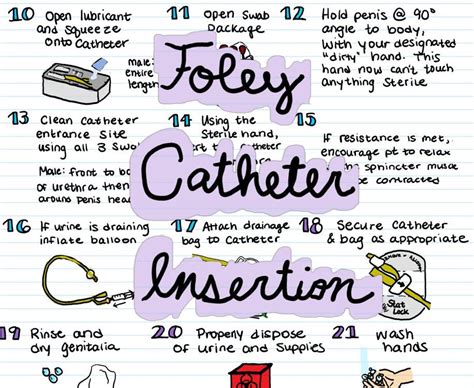 10 Open lubricant
and squeeze
onto Catheter
male:
entire
length
11 Open Swab
package
12 Hold penis @ 90°
angle to body,
with your designated
"dirty" hand. This
hand now can't touch
anything sterile
Foley
Catheter
Insertion
13 Clean catheter
entrance site
using all 3 swa
Male: front to b
of urethra then
around penis head
14 Using the
sterile hand,
catheter
15
If resistance is met,
encourage pt to relax
sphincter musc
be contracted
16 If urine is draining
inflate balloon
17 Attach drainage
bag to catheter
18 Secure catheter
& bag as appropriate
Stat
Lock
19 Rinse and
dry genitalia
20 Properly dispose
of urine and supplies
21 wash
hands